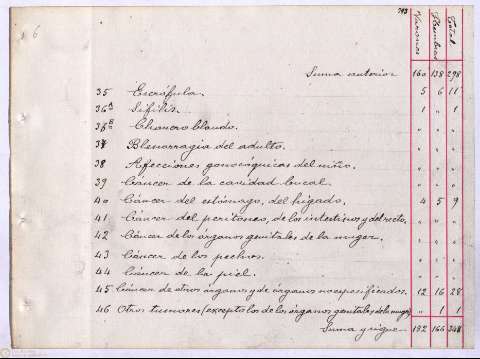 6
Varones Hembras Total
Suma anterior 160 138 298
35 Escrófula. 5 6 11
36A Sífilis. 1 " 1
36B Chancro blando. " " "
37 Blenorragia del adulto. " " "
38 Afecciones gonocóquicas del niño. " " "
39 Cáncer de la cavidad bucal. " " "
40 Cáncer del estómago, del hígado. 4 5 9
41 Cáncer del peritoneo, de los intestinos y del recto. " " "
42 Cáncer de los órganos genitales de la muger. " " "
43 Cáncer de los pechos. " " "
44 Cáncer de la piel. " " "
45 Cáncer de otros órganos y de órganos no especificados. 12 16 28
46 Otros tumores (excepto los de los órganos genitales de la muger) " 1 1
Suma y sigue 182 166 348